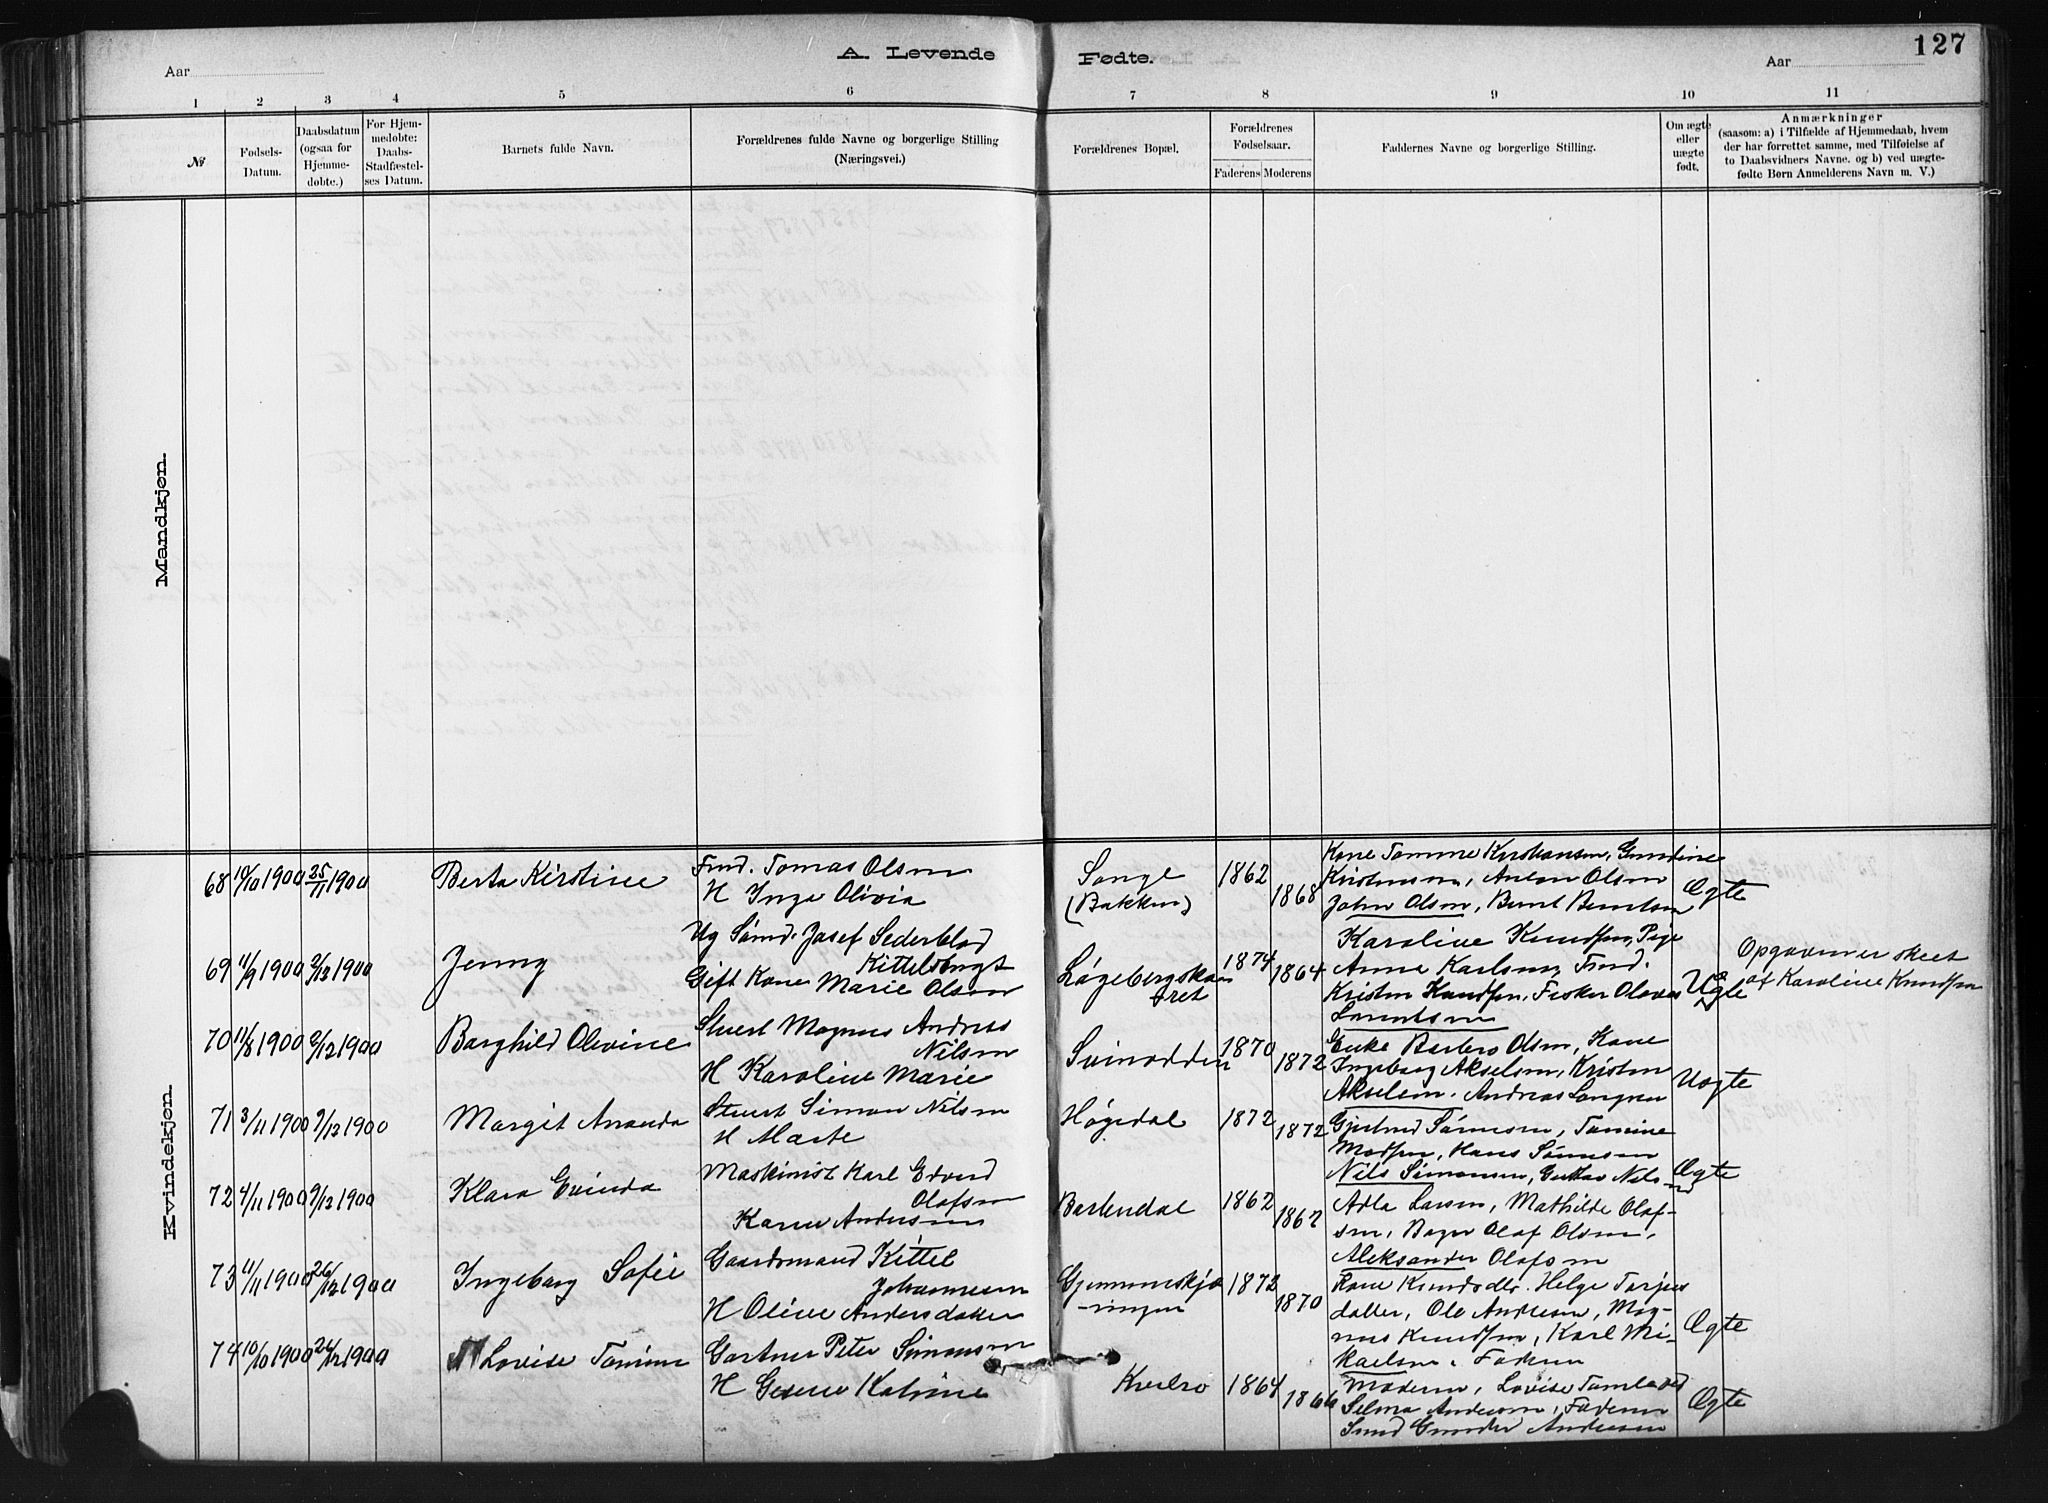 127
A. Levende Fødte.
Aar
Aar
1 2 3 4 5 6 7 8 9 10 11
№
Fødsels-Datum.
Daabsdatum (ogsaa for Hjemme-døbte.)
For Hjem-medøbte: Daabs-Stadfæstel-ses Datum.
Barnets fulde Navn.
Forældrenes fulde Navne og borgerlige Stilling (Næringsvei.)
Forældrenes Bopæl.
Forældrenes Fødselsaar.
Faderens Moderens
Faddernes Navne og borgerlige Stilling.
Om ægte eller uægte født.
Anmærkninger
(saasom: a) i Tilfælde af Hjemmedaab, hvem
der har forrettet samme, med Tilføielse af
to Daabsvidners Navne. og b) ved uægte-
fødte Børn Anmelderens Navn m. V.)
Mandkjøn.
Kvindekjøn.
68 10/10 1900 25/11 1900 Berta Kirstine
Tomas Olsen
H Inga Olivia
Songe
(Bakken)
1862 1868
Kone Tomine Kristiansen, Gundine
Kristensen, Anton Olsen
John Olsen, Bernt Berntsen
Ægte
69 11/9 1900 2/12 1900 Jenny
Ug Sømd. Josef Sederblad
Kittelsbugt
Gift Kone Marie Olsen
Løgebergskaa
ret
1874 1864
Karoline Knudsen, Pige
Anna Karlsen
Kristen Knudsen, Fisker Olaves
Larentsen
Uægte
Opgaven er skeet
af Karoline Knudsen
70 11/8 1900 2/12 1900 Borghild Olevine
Stuert Magnus Andreas
Nilsen
H Karoline Marie
Svinodden
1870 1872
Enke Barbro Olsen, Kone
Ingeborg Akselsen, Kristen
Akselsen. Andreas
Uægte
71 3/11 1900 9/12 1900 Margit Amanda
Stuert Simon Nilsen
H Marte
Høgedal
1872 1872
Gjertrud Sørensen, Tomine
Madsen, Hans Sørensen
Nils Simonsen, Gustav Nils-
en
Ægte
72 4/11 1900 9/12 1900 Klara Evinda
Maskinist Karl Edvard
Olafsen
Karen Andersen
Barlindal
1862 1862
Adla Larsen, Mathilde Olaf-
sen, Olaf Olsen,
Aleksander Olafsen
73 11/11 1900 26/12 1900 Ingeborg Sofie
Gaardmand Kittel
Johannesen
H Oline Andersdatter
Gjennemskjæ
ringen
1872 1870
Kone Helge Torjus
datter, Ole Andersen, Mag-
nus Knudsen, Karl
Karlsen. Faderen
Ægte
74 10/10 1900 26/12 1900 Lovise Tomine
Gartner Peter Simonsen
H Katrine
Kvelro
1864 1866
Moderen, Lovise
Selma Andersen, Faderen
Gunder Andersen
Ægte